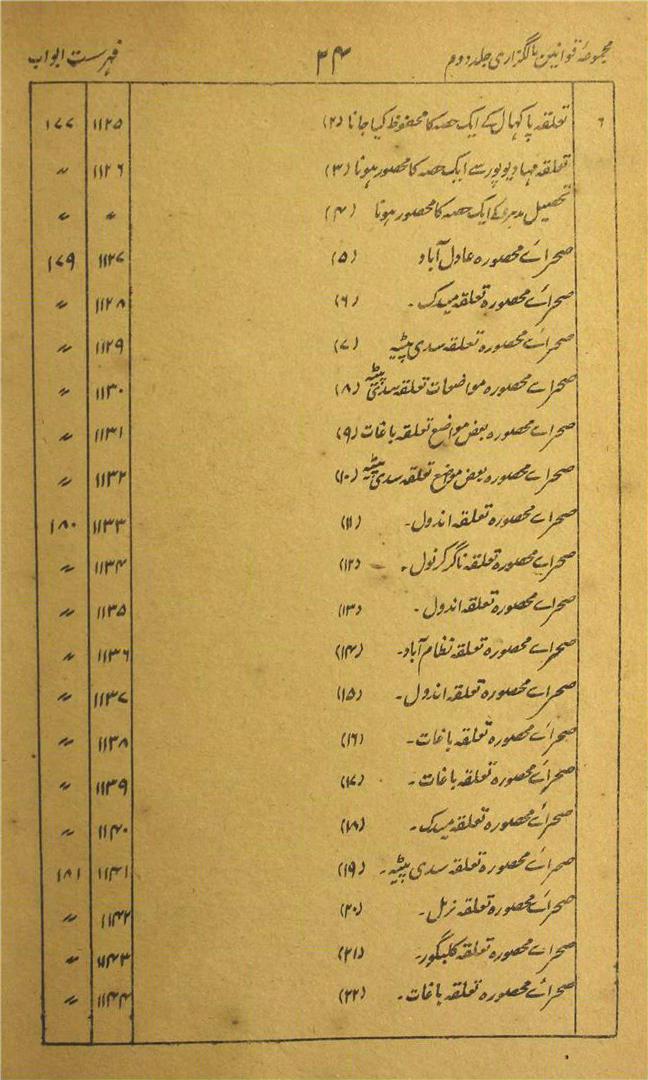 مجموعۂ قوانین مالگزاری جلد دوم ۳۴ فہرست ابواب
۶ تعلقہ پاکہال کے ایک حصہ کا محفوظ کیا جانا (۲) ۱۱۲۵ ۱۷۷
تعلقہ مہادیوپور سے ایک حصہ کا محصور ہونا (۳) ۱۱۲۶ 〃
تحصیل مدہرہ کے ایک حصہ کا محصور ہونا (۴) 〃 〃
صحرائے محصورہ عادل آباد (۵) ۱۱۲۷ ۱۷۹
صحرائے محصورہ تعلقہ میدک ۔ (۶) ۱۱۲۸ 〃
صحرائے محصورہ تعلقہ سدی پیٹہ (۷) ۱۱۲۹ 〃
صحرائے محصورہ مواضعات تعلقہ سدی پیٹہ (۸) ۱۱۳۰ 〃
صحرائے محصورہ بعض مواضع تعلقہ باغات (۹) ۱۱۳۱ 〃
صحرائے محصورہ بعض مواضع تعلقہ سدی پیٹہ (۱۰) ۱۱۳۲ 〃
صحرائے محصورہ تعلقہ اندول ۔ (۱۱) ۱۱۳۳ ۱۸۰
صحرائے محصورہ تعلقہ ناگر کرنول ۔ (۱۲) ۱۱۳۴ 〃
صحرائے محصورہ تعلقہ اندول ۔ (۱۳) ۱۱۳۵ 〃
صحرائے محصورہ تعلقہ نظام آباد ۔ (۱۴) ۱۱۳۶ 〃
صحرائے محصورہ تعلقہ اندول ۔ (۱۵) ۱۱۳۷ 〃
صحرائے محصورہ تعلقہ باغات ۔ (۱۶) ۱۱۳۸ 〃
صحرائے محصورہ تعلقہ باغات ۔ (۱۷) ۱۱۳۹ 〃
صحرائے محصورہ تعلقہ میدک ۔ (۱۸) ۱۱۴۰ 〃
صحرائے محصورہ تعلقہ سدی پیٹہ ۔ (۱۹) ۱۱۴۱ ۱۸۱
صحرائے محصورہ تعلقہ نرمل ۔ (۲۰) ۱۱۴۲ 〃
صحرائے محصورہ تعلقہ کلبگور ۔ (۲۱) ۱۱۴۳ 〃
صحرائے محصورہ تعلقہ باغات ۔ (۲۲) ۱۱۴۴ 〃